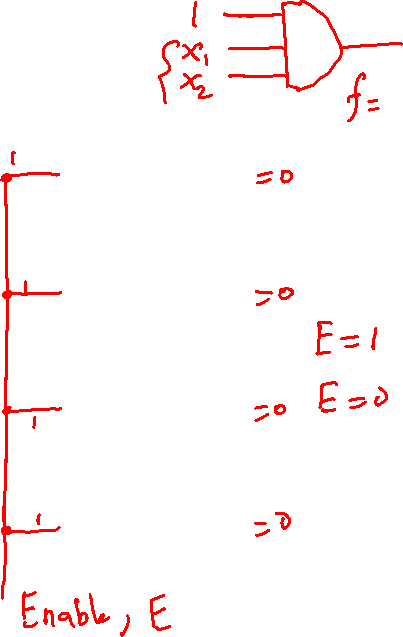 1
x₁
x₂
f=
1
=0
1
=0
E=1
1
=0
E=0
1
=0
Enable, E